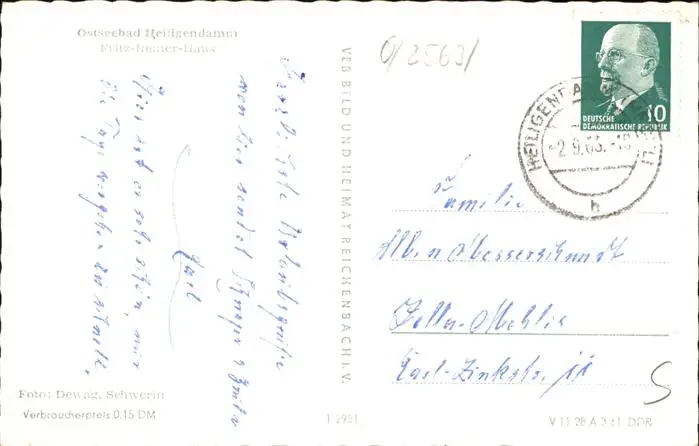 Ostseebad Heiligendamm
Fritz-Reuter-Haus
0/2563/
Herzlichste Urlaubsgrüße
von hier sendet Schwager &
Karl
Hier ist es sehr schön, nur
die Tage vergehen zu schnell.
VEB BILD UND HEIMAT REICHENBACH i. V.
DEUTSCHE
DEMOKRATISCHE REPUBLIK
10
HEILIGENDAMM
-2.9.63.-18
h
Familie
Albin Messerschmidt
Zella-Mehlis
Karl-Zink-Str. 11
Foto: Dewag, Schwerin
Verbraucherpreis 0,15 DM
1 2951
V 11 28 A 3/61 DDR